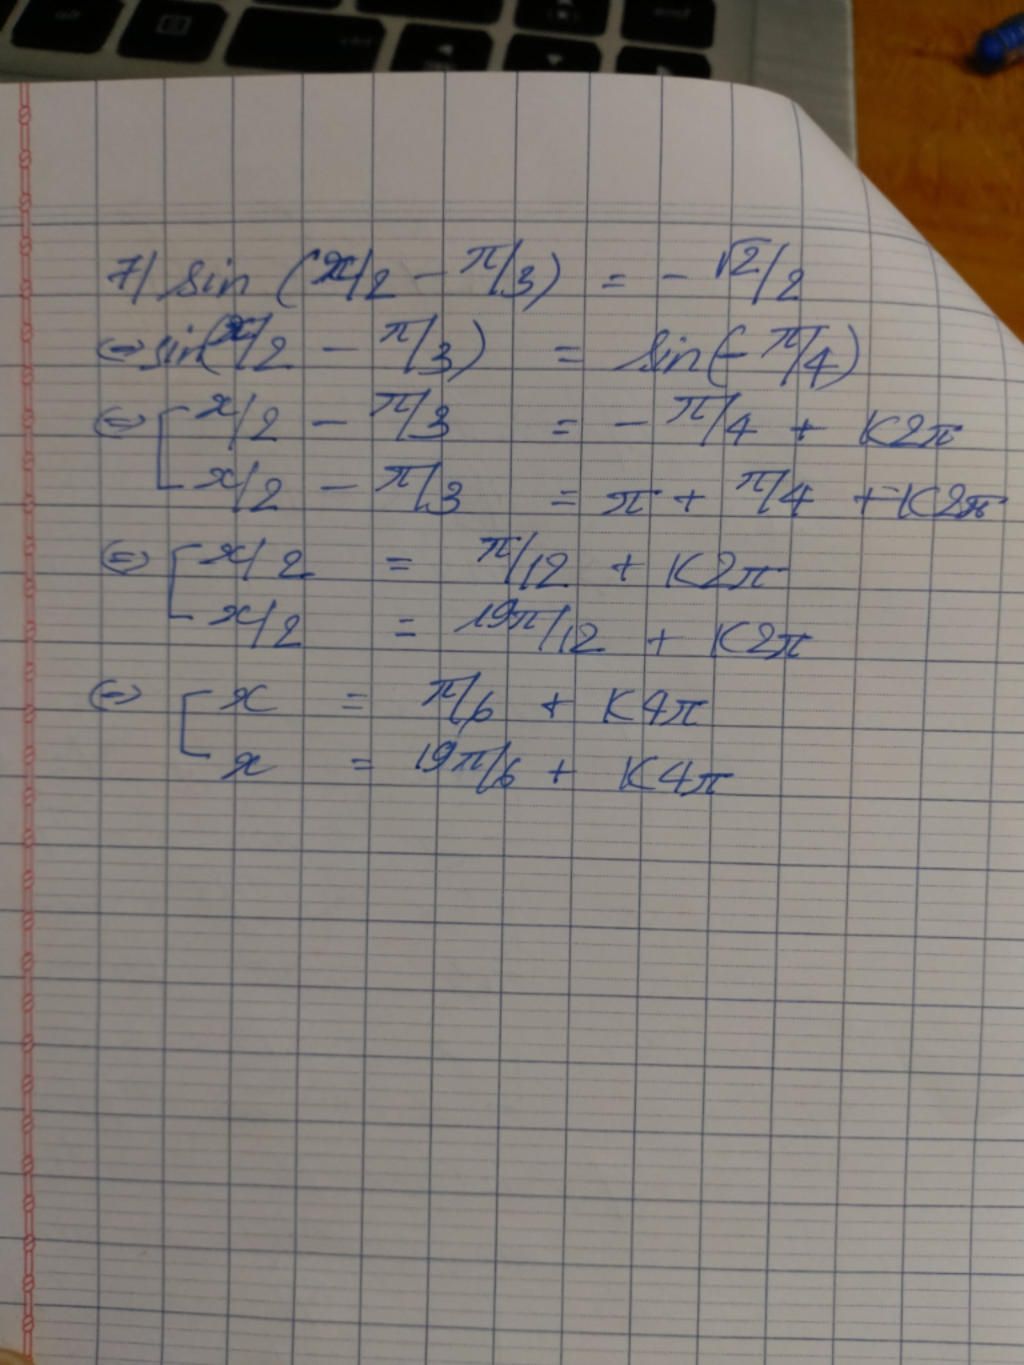 7/ sin (x/2 - π/3) = - √2/2
⇔ sin(x/2 - π/3) = sin(- π/4)
⇔ [ x/2 - π/3 = - π/4 + K2π
x/2 - π/3 = π + π/4 + K2π
⇔ [ x/2 = π/12 + K2π
x/2 = 19π/12 + K2π
⇔ [ x = π/6 + K4π
x = 19π/6 + K4π